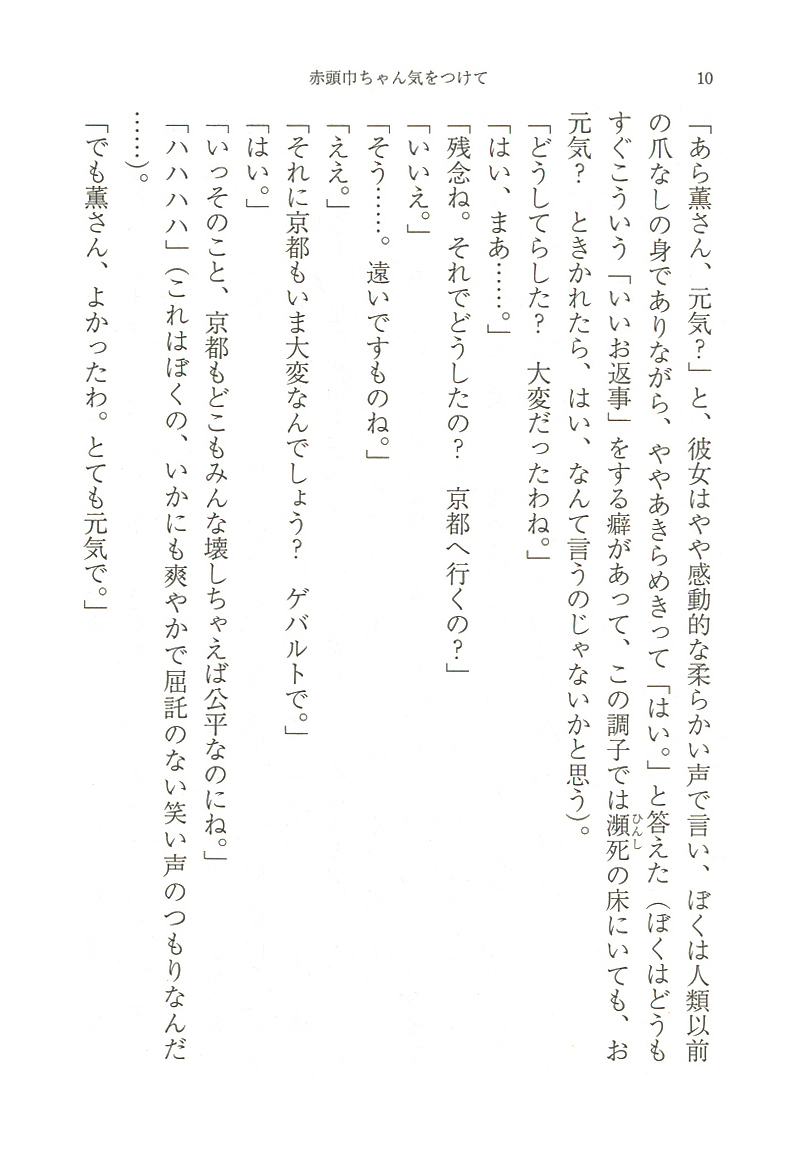 赤頭巾ちゃん気をつけて
10
「あら薫さん、元気？」と、彼女はやや感動的な柔らかい声で言い、ぼくは人類以前
の爪なしの身でありながら、ややあきらめきって「はい。」と答えた（ぼくはどうも
すぐこういう「いいお返事」をする癖があって、この調子では瀕死の床にいても、お
ひんし
元気？　ときかれたら、はい、なんて言うのじゃないかと思う）。
「どうしてらした？　大変だったわね。」
「はい、まあ……。」
「残念ね。それでどうしたの？　京都へ行くの？」
「いいえ。」
「そう……。遠いですものね。」
「ええ。」
「それに京都もいま大変なんでしょう？　ゲバルトで。」
「はい。」
「いっそのこと、京都もどこもみんな壊しちゃえば公平なのにね。」
「ハハハハ」（これはぼくの、いかにも爽やかで屈託のない笑い声のつもりなんだ
……）。
「でも薫さん、よかったわ。とても元気で。」